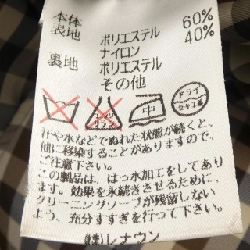 本体
表地 ポリエステル 60%
ナイロン 40%
裏地 ポリエステル
その他
中
ドライ
セキユ系
汗や水などでぬれた状態が続くと、
他に移染することがありますので、
ご注意下さい。
この製品は、はっ水加工をしてあり
ます。効果を永続きさせるために、
クリーニングソープが残留しない
よう、充分すすぎを行って下さい。
㈱レナウン